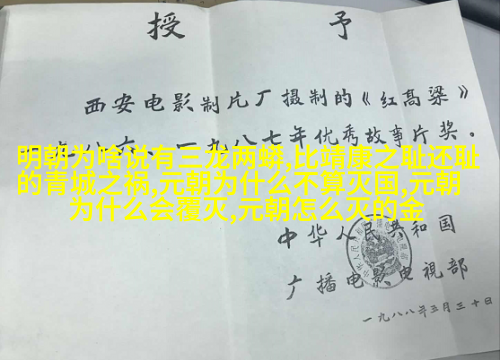 授 予
西安电影制片厂摄制的《红高粱》
一九八六—一九八七年优秀故事片奖。
明朝为啥说有三龙两蟒,比靖康之耻还耻
的青城之祸,元朝为什么不算灭国,元朝
为什么会覆灭,元朝怎么灭的金
中华人民共和国
广播电影电视部
一九八八年三月三十日